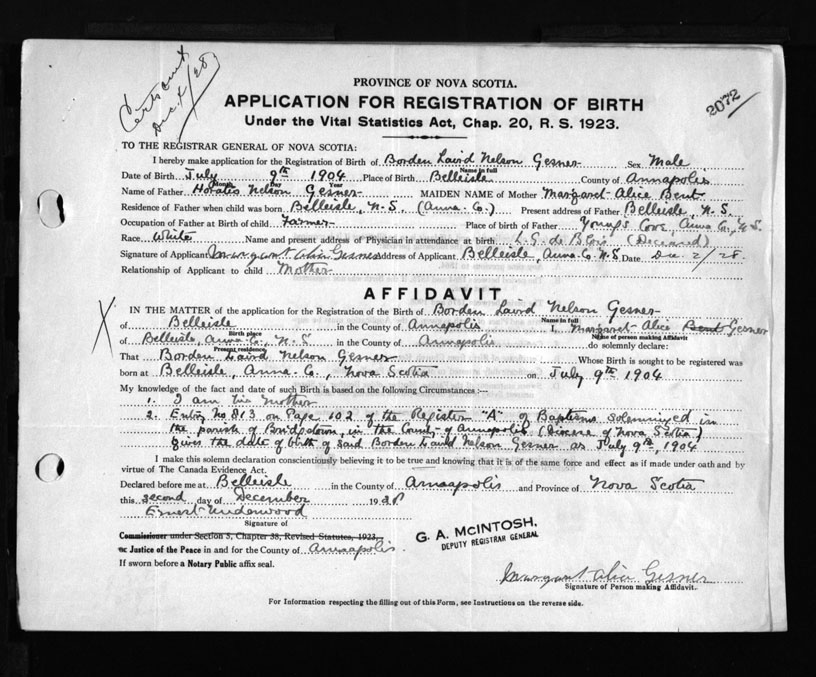 Cert sent
Dec. 4/28
PROVINCE OF NOVA SCOTIA.
APPLICATION FOR REGISTRATION OF BIRTH
2072
Under the Vital Statistics Act, Chap. 20, R. S. 1923.
TO THE REGISTRAR GENERAL OF NOVA SCOTIA:
I hereby make application for the Registration of Birth of Borden Laird Nelson Gesner Sex Male
Name in full
Date of Birth July 9th 1904 Place of Birth Belleisle County of Annapolis
Month Day Year
Name of Father Horatio Nelson Gesner MAIDEN NAME of Mother Margaret Alice Bent
Residence of Father when child was born Belleisle, N.S. (Anna. Co.) Present address of Father Belleisle, N.S.
Occupation of Father at Birth of child Farmer Place of birth of Father Youngs Cove, Anna Co, N.S.
Race White Name and present address of Physician in attendance at birth L. G. de Blois (Deceased)
Signature of Applicant Margaret Alice Gesner Address of Applicant Belleisle, Anna. Co. N.S. Date Dec. 2/28.
Relationship of Applicant to child Mother
AFFIDAVIT
X
IN THE MATTER of the application for the Registration of the Birth of Borden Laird Nelson Gesner
Name in full
of Belleisle in the County of Annapolis I, Margaret Alice Bent Gesner
Birth place Name of person making Affidavit
of Belleisle, Anna. Co., N.S. in the County of Annapolis do solemnly declare:
Present residence
That Borden Laird Nelson Gesner Whose Birth is sought to be registered was
born at Belleisle, Anna. Co., Nova Scotia on July 9th 1904
My knowledge of the fact and date of such Birth is based on the following Circumstances:—
1. I am his mother
2. Entry No 813 on Page 102 of the Register "A" of Baptisms solemnized in
the parish of Bridgetown, in the County of Annapolis (Diocese of Nova Scotia)
gives the date of birth of said Borden Laird Nelson Gesner as July 9th, 1904
I make this solemn declaration conscientiously believing it to be true and knowing that it is of the same force and effect as if made under oath and by
virtue of The Canada Evidence Act.
Declared before me at Belleisle in the County of Annapolis and Province of Nova Scotia
this second day of December 1928
Ernest Underwood
Signature of
Commissioner under Section 3, Chapter 38, Revised Statutes, 1923,
or Justice of the Peace in and for the County of Annapolis.
If sworn before a Notary Public affix seal.
G. A. McINTOSH,
DEPUTY REGISTRAR GENERAL
Margaret Alice Gesner
Signature of Person making Affidavit.
For Information respecting the filling out of this Form, see Instructions on the reverse side.